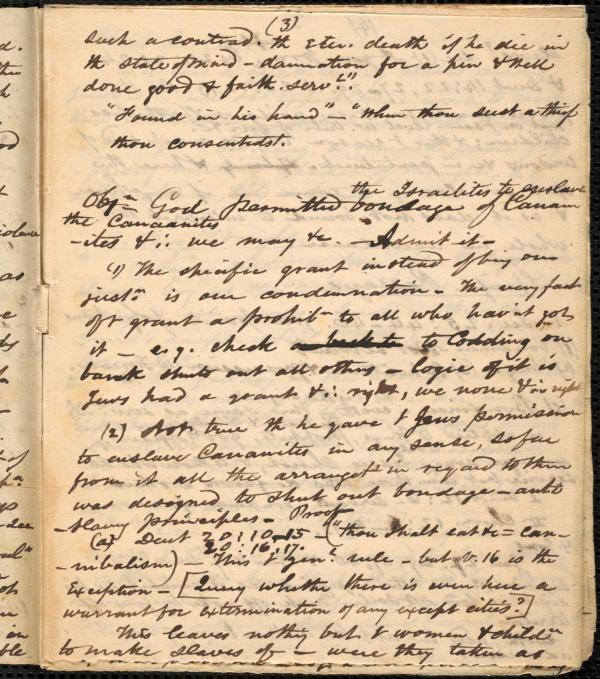 (3)
such a contract. Th Eter. death if he die in
the state of mind - damnation for a pin & Hell
done good & faith. servt".
"Found in his hand" - "When thou seest a thief
thou consentedst.
the Israelites to enslave
Objn God permitted bondage of Canaan
the Canaanites
-ites & ∴ we may &c. - Admit it -
(1) The specific grant instead of being our
justn is our condemnation - The very fact
of t grant a prohibn to all who hav'nt got
it - e.g. check to Codding on
bank shuts out all others - logic of it is
Jews had a grant & ∴ right, we none & ∴ no right
(2) Not true th he gave t Jews permission
to enslave Canaanites in any sense, so far
from it all the arrangets in regard to them
was designed to shut out bondage - anti
-slavery principles - Proof
(a) Deut 20:10-15 - ("thou shalt eat &c = can-
20:16,17.
-nibalism) - This t genl rule - but v. 16 is the
Exception - [Query whethr there is even here a
warrant for extermination of any except cities?]
This leaves nothg but t women & childn
to make slaves of - were they taken as